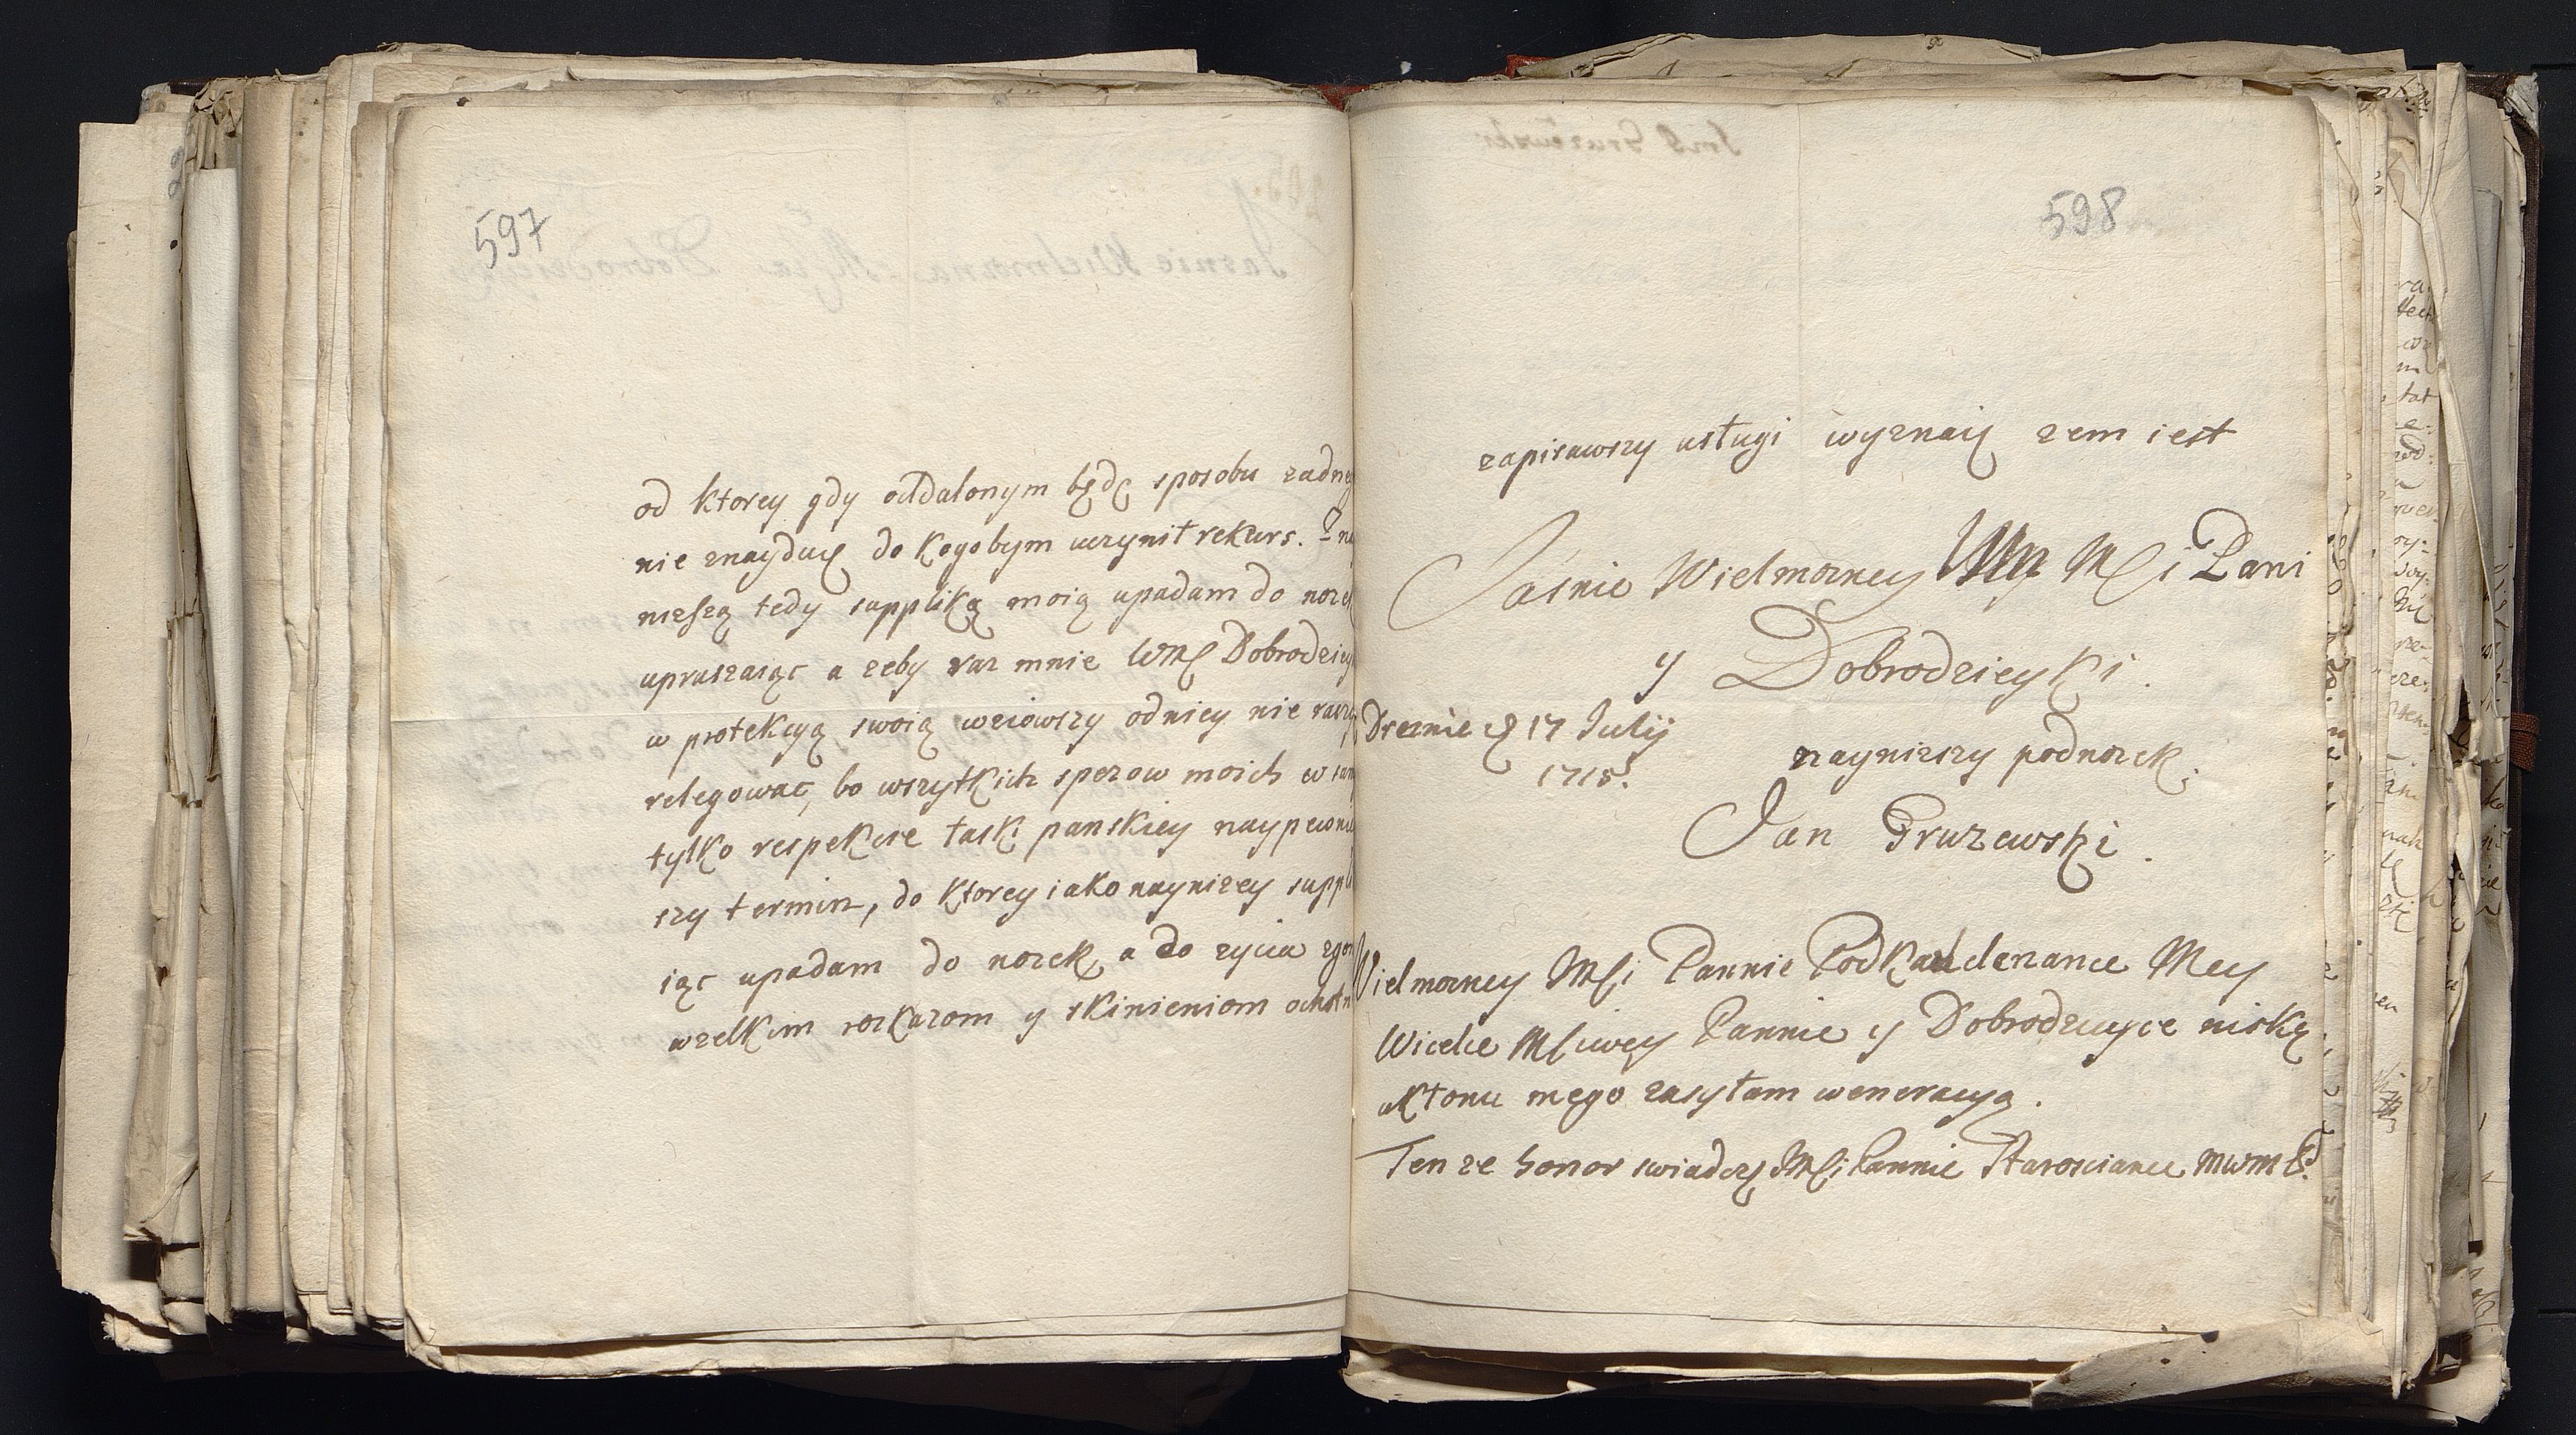 597
od ktorey gdy oddalonym będę sposobu zadne
nie znayduię do kogobym uczynił rekurs.
nizszą tedy suppliką moią upadam do noze
upraszaiąc a zeby raz mnie WMę Dobrodziey
w protekcyą swoią wziowszy odniey nie raczy
relegowac, bo wszytkich sperow moich w sam
tylko respekcie łaski panskiey naypewni
szy termin, do ktorey iako naynizey suppli
iąc upadam do nozek a do zycia zgon
wzelkim rozkazom y skinieniom ochotn
598
zapisawszy usługi wyznaię zem iest
Jasnie Wielmozney Mi Pani
y Dobrodzieyki.
Dreznie d 17 Julij
1715.
naynizszy podnozek
Jan Gruzewski.
Wielmozney Mći Pannie Podkanclerzance Mey
Wielce Mćiwey Pannie y Dobrodzieyce niską
ukłonu mego zasyłam weneracyą.
Ten ze honor swiadczę Mći Pannie Starosciance